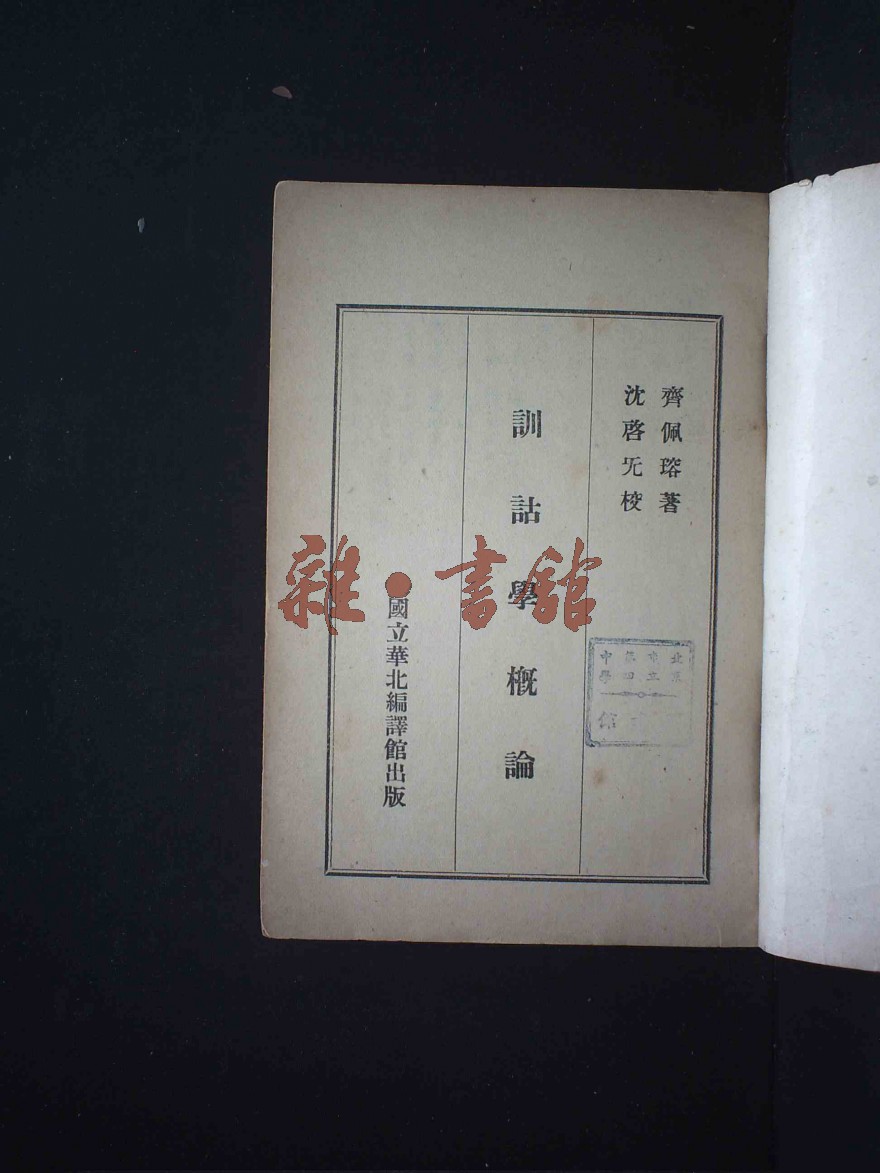 齊佩瑢著
沈啓旡校
訓詁學概論
國立華北編譯館出版
雜·書館
北京
市立
第四
中學
館